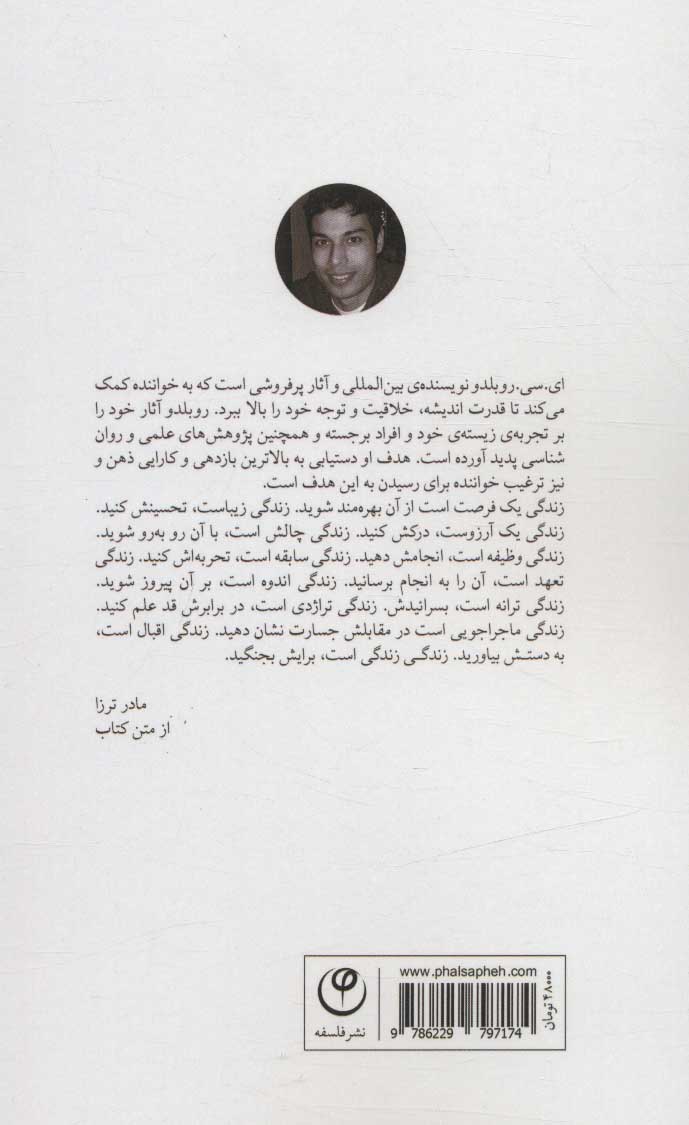 ای.سی.روبلدو نویسنده‌ی بین‌المللی و آثار پرفروشی است که به خواننده کمک
می‌کند تا قدرت اندیشه، خلاقیت و توجه خود را بالا ببرد. روبلدو آثار خود را
بر تجربه‌ی زیسته‌ی خود و افراد برجسته و همچنین پژوهش‌های علمی و روان
شناسی پدید آورده است. هدف او دستیابی به بالاترین بازدهی و کارایی ذهن و
نیز ترغیب خواننده برای رسیدن به این هدف است.
زندگی یک فرصت است از آن بهره‌مند شوید. زندگی زیباست، تحسینش کنید.
زندگی یک آرزوست، درکش کنید. زندگی چالش است، با آن رو به‌رو شوید.
زندگی وظیفه است، انجامش دهید. زندگی سابقه است، تحربه‌اش کنید. زندگی
تعهد است، آن را به انجام برسانید. زندگی اندوه است، بر آن پیروز شوید.
زندگی ترانه است، بسرائیدش. زندگی تراژدی است، در برابرش قد علم کنید.
زندگی ماجراجویی است در مقابلش جسارت نشان دهید. زندگی اقبال است،
به دستش بیاورید. زندگی زندگی است، برایش بجنگید.
مادر ترزا
از متن کتاب
www.phalsapheh.com
9 786229 797174
۴۸۰۰۰ تومان
نشر فلسفه